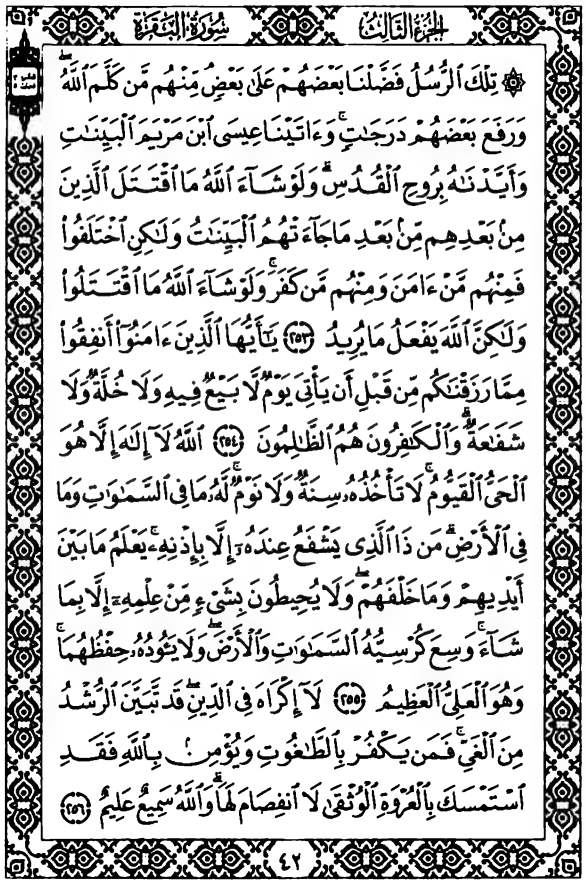 الجزء الثالث
سورة البقرة
۞ تِلْكَ ٱلرُّسُلُ فَضَّلْنَا بَعْضَهُمْ عَلَىٰ بَعْضٍۘ مِّنْهُم مَّن كَلَّمَ ٱللَّهُۖ
وَرَفَعَ بَعْضَهُمْ دَرَجَٰتٍۚ وَءَاتَيْنَا عِيسَى ٱبْنَ مَرْيَمَ ٱلْبَيِّنَٰتِ
وَأَيَّدْنَٰهُ بِرُوحِ ٱلْقُدُسِۗ وَلَوْ شَآءَ ٱللَّهُ مَا ٱقْتَتَلَ ٱلَّذِينَ
مِنۢ بَعْدِهِم مِّنۢ بَعْدِ مَا جَآءَتْهُمُ ٱلْبَيِّنَٰتُ وَلَٰكِنِ ٱخْتَلَفُوا۟
فَمِنْهُم مَّنْ ءَامَنَ وَمِنْهُم مَّن كَفَرَۚ وَلَوْ شَآءَ ٱللَّهُ مَا ٱقْتَتَلُوا۟
وَلَٰكِنَّ ٱللَّهَ يَفْعَلُ مَا يُرِيدُ ٢٥٣ يَٰٓأَيُّهَا ٱلَّذِينَ ءَامَنُوٓا۟ أَنفِقُوا۟
مِمَّا رَزَقْنَٰكُم مِّن قَبْلِ أَن يَأْتِىَ يَوْمٌ لَّا بَيْعٌ فِيهِ وَلَا خُلَّةٌ وَلَا
شَفَٰعَةٌۗ وَٱلْكَٰفِرُونَ هُمُ ٱلظَّٰلِمُونَ ٢٥٤ ٱللَّهُ لَآ إِلَٰهَ إِلَّا هُوَ
ٱلْحَىُّ ٱلْقَيُّومُۚ لَا تَأْخُذُهُۥ سِنَةٌ وَلَا نَوْمٌۚ لَّهُۥ مَا فِى ٱلسَّمَٰوَٰتِ وَمَا
فِى ٱلْأَرْضِۗ مَن ذَا ٱلَّذِى يَشْفَعُ عِندَهُۥٓ إِلَّا بِإِذْنِهِۦۚ يَعْلَمُ مَا بَيْنَ
أَيْدِيهِمْ وَمَا خَلْفَهُمْۖ وَلَا يُحِيطُونَ بِشَىْءٍ مِّنْ عِلْمِهِۦٓ إِلَّا بِمَا
شَآءَۚ وَسِعَ كُرْسِيُّهُ ٱلسَّمَٰوَٰتِ وَٱلْأَرْضَۖ وَلَا يَـُٔودُهُۥ حِفْظُهُمَاۚ
وَهُوَ ٱلْعَلِىُّ ٱلْعَظِيمُ ٢٥٥ لَآ إِكْرَاهَ فِى ٱلدِّينِۖ قَد تَّبَيَّنَ ٱلرُّشْدُ
مِنَ ٱلْغَىِّۚ فَمَن يَكْفُرْ بِٱلطَّٰغُوتِ وَيُؤْمِنۢ بِٱللَّهِ فَقَدِ
ٱسْتَمْسَكَ بِٱلْعُرْوَةِ ٱلْوُثْقَىٰ لَا ٱنفِصَامَ لَهَاۗ وَٱللَّهُ سَمِيعٌ عَلِيمٌ ٢٥٦
٤٢